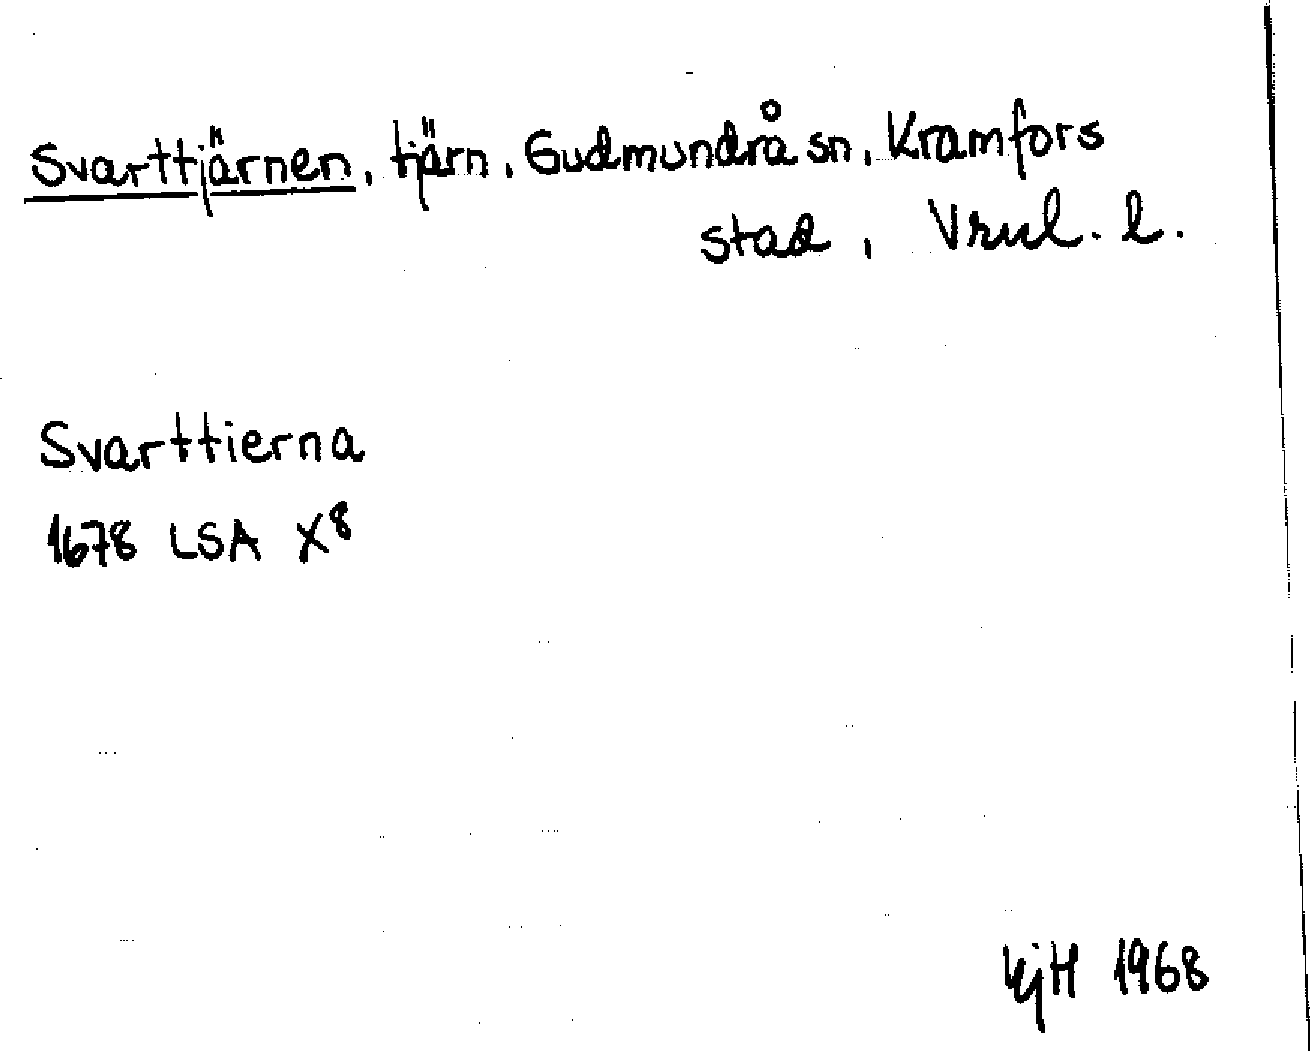 Svarttjärnen, tjärn, Gudmundrå sn, Kramfors
stad, Vrnl. l.
Svarttierna
1678 LSA X8
1968